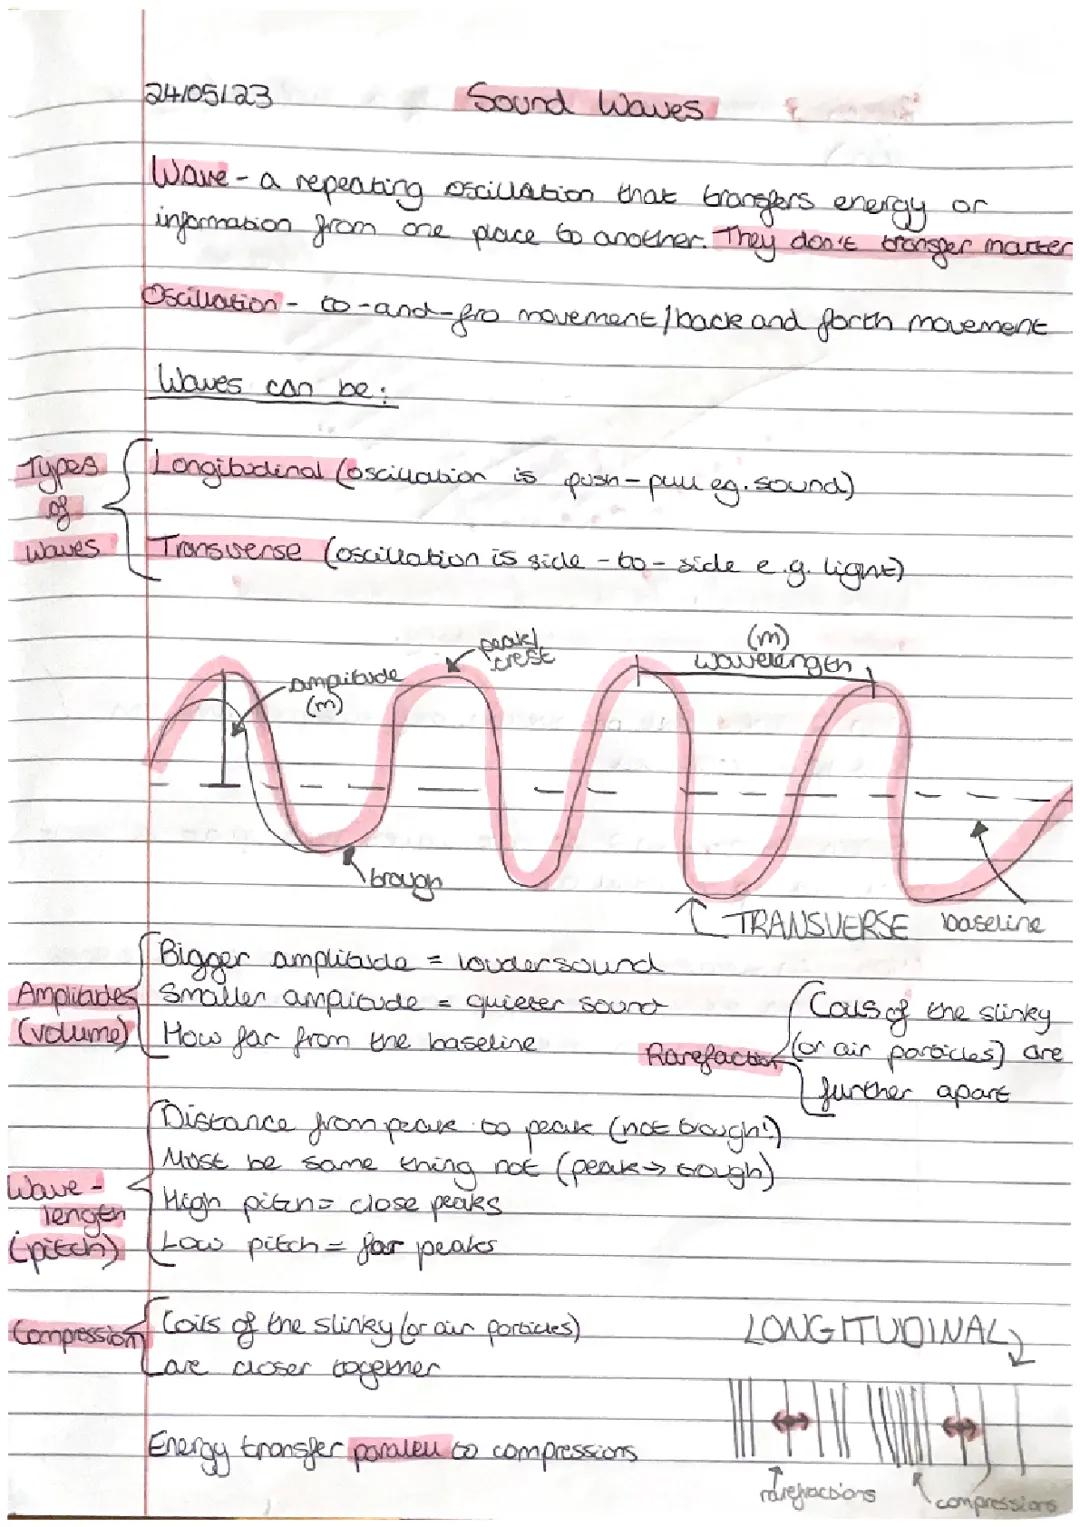 24/05/23
Sound Waves
Wave - a repeating oscillation that transfers energy or
information from one place to another. They don't transfer matter
Oscillation - to-and-fro movement/back and forth movement
Waves can be:
Types
of
waves
Longitudinal (oscillation is push-pull eg. sound)
Transverse (oscillation is side-to-side e.g. light)
ampitude
(m)
peak/
crest
(m)
wavelength
trough
TRANSVERSE
baseline
Amplitudes
(volume)
Bigger amplitude = louder sound
Smaller ampitude = quieter sound
How far from the baseline
Rarefaction
Coils of the slinky
(or air particles) are
further apart
Wave-
length
(pitch)
Distance from peak to peak (not trough!)
Must be same thing not (peak→trough)
High pitch = close peaks
Low pitch = far peaks
Compression
Coils of the slinky (or air particles)
are closer together
LONGITUDINAL
Energy transfer parallel to compressions
rarefractions
compressions